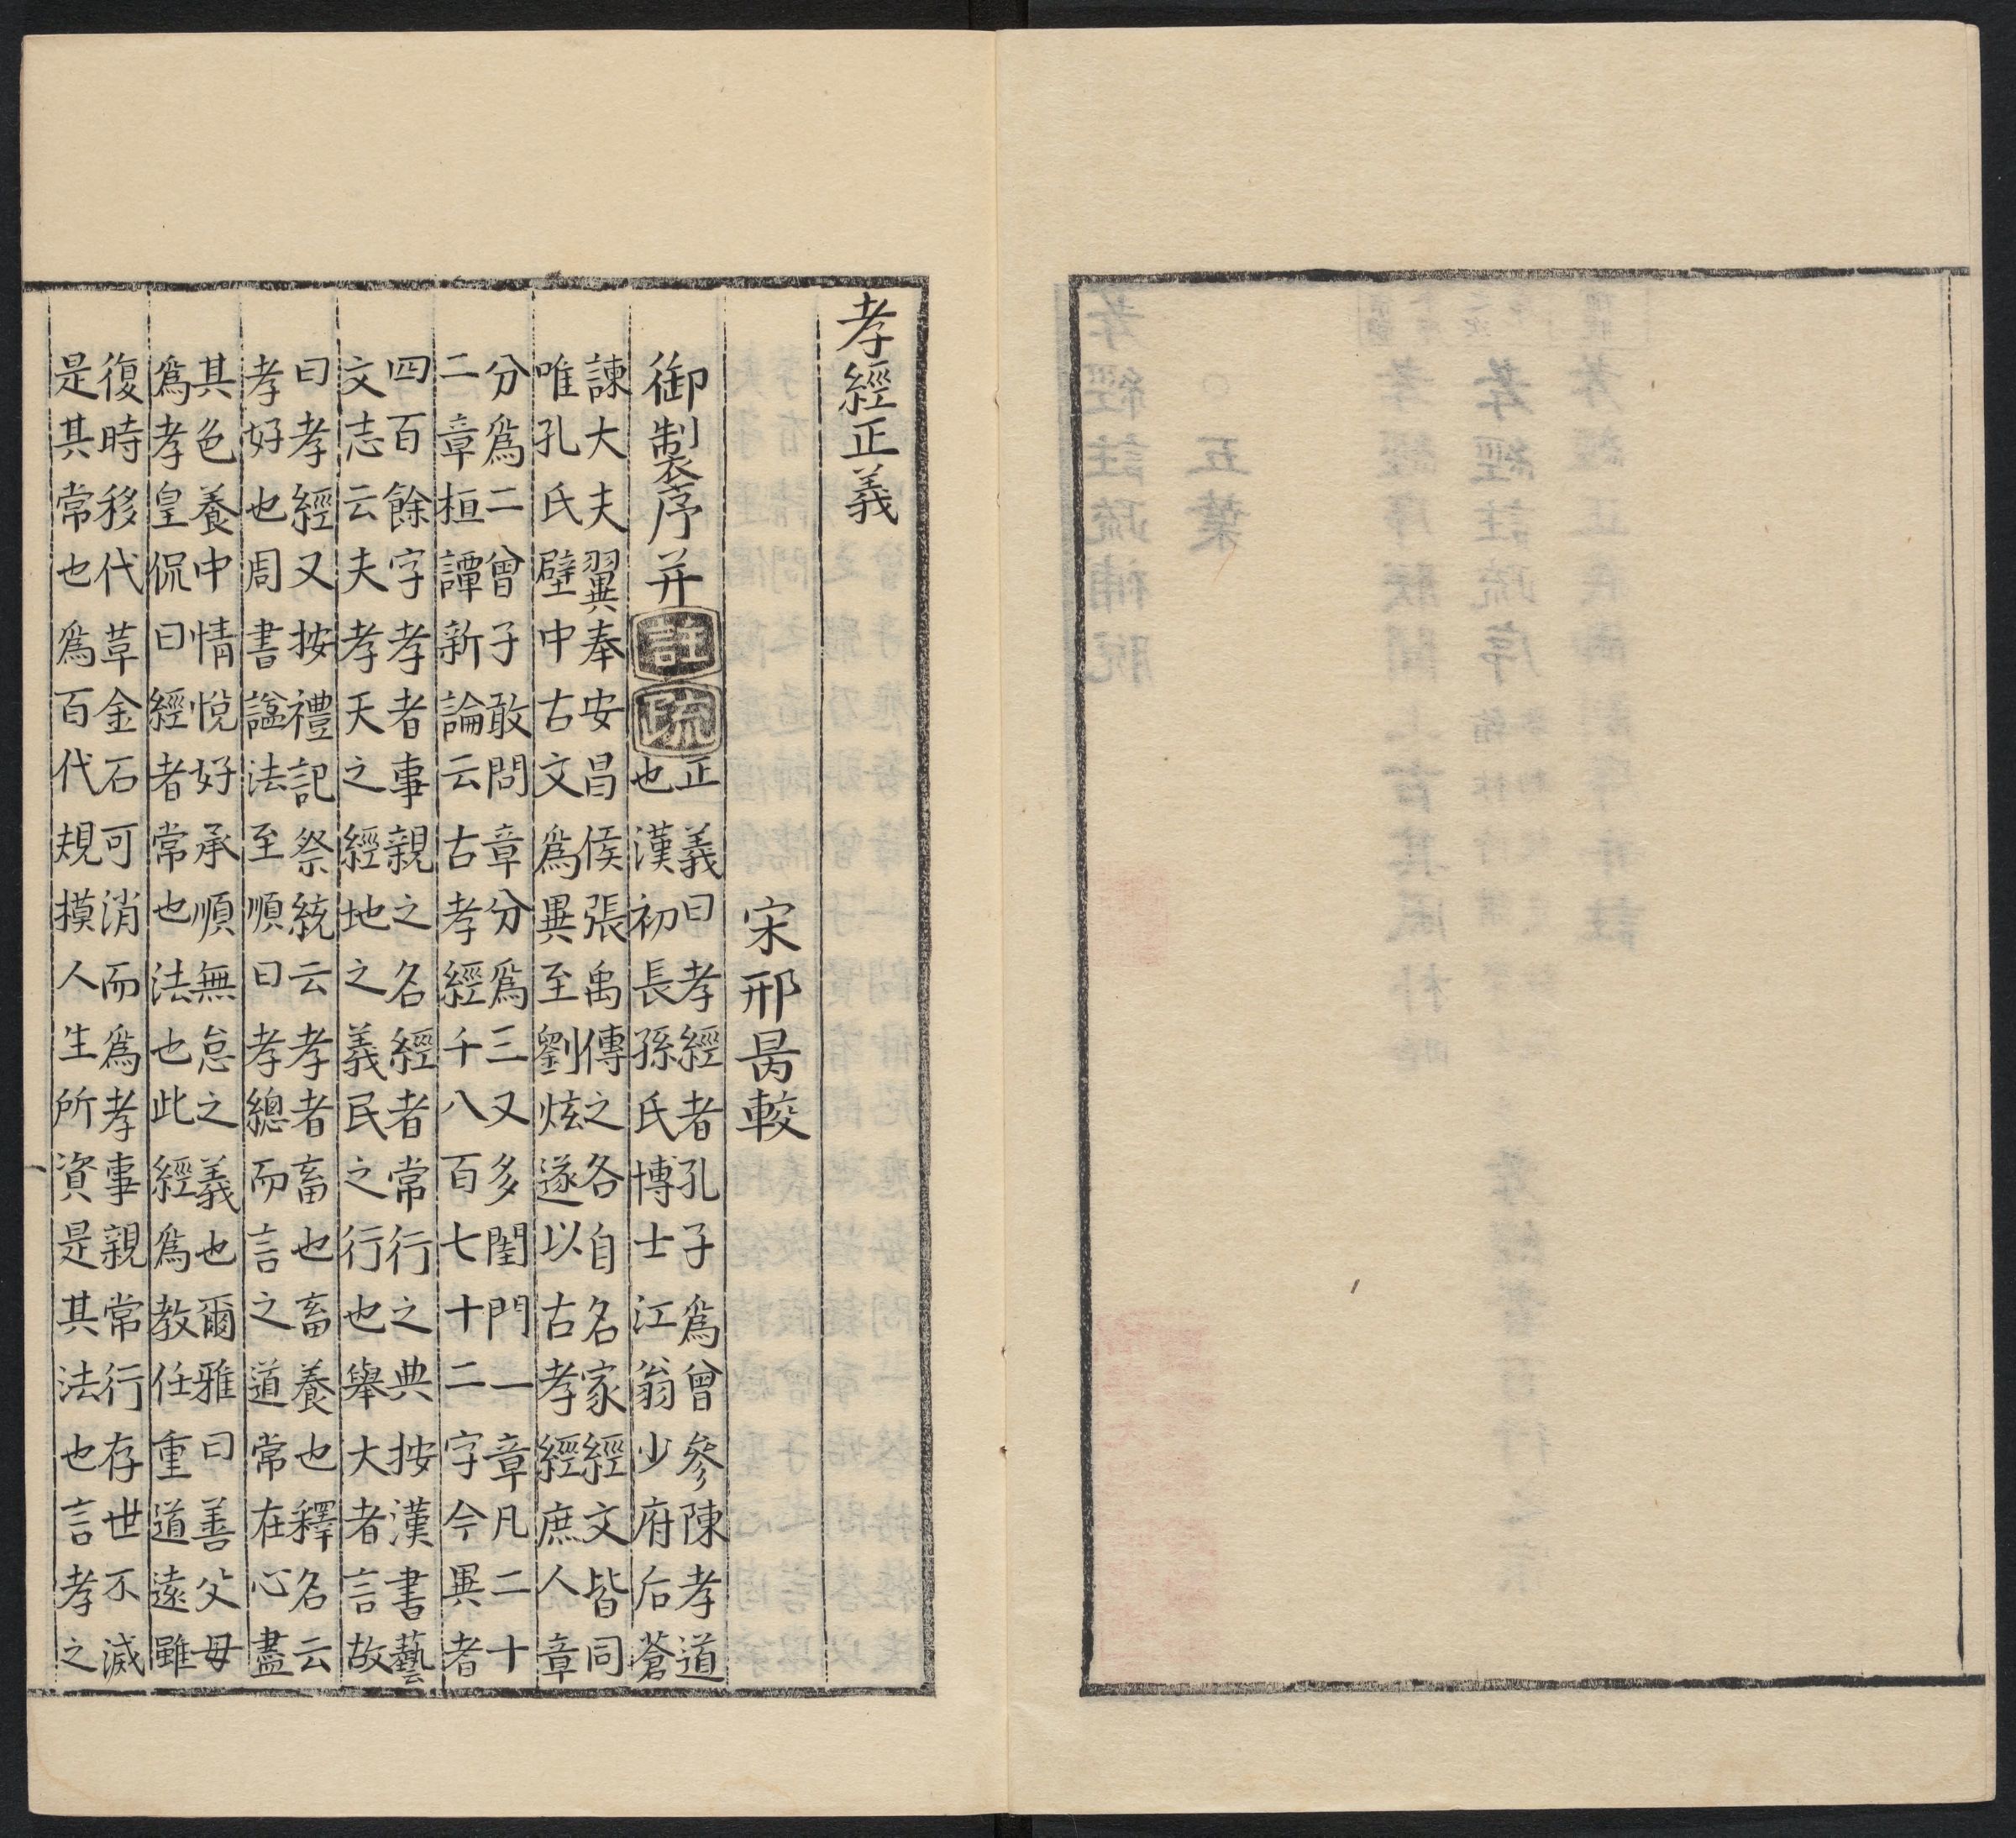 孝經正義
宋邢昺較
御製序并註疏
正義曰孝經者孔子爲曾參陳孝道
也漢初長孫氏博士江翁少府后蒼
諫大夫翼奉安昌侯張禹傳之各自名家經文皆同
唯孔氏壁中古文爲異至劉炫遂以古孝經庶人章
分爲二曾子敢問章分爲三又多閨門一章凡二十
二章桓譚新論云古孝經千八百七十二字今異者
四百餘字孝者事親之名經者常行之典按漢書藝
文志云夫孝天之經地之義民之行也舉大者言故
曰孝經又按禮記祭統云孝者畜也畜養也釋名云
孝好也周書諡法至順曰孝總而言之道常在心盡
其色養中情悅好承順無怠之義也爾雅曰善父母
爲孝皇侃曰經者常也法也此經爲教任重道遠雖
復時移代革金石可消而爲孝事親常行存世不滅
是其常也爲百代規摸人生所資是其法也言孝之